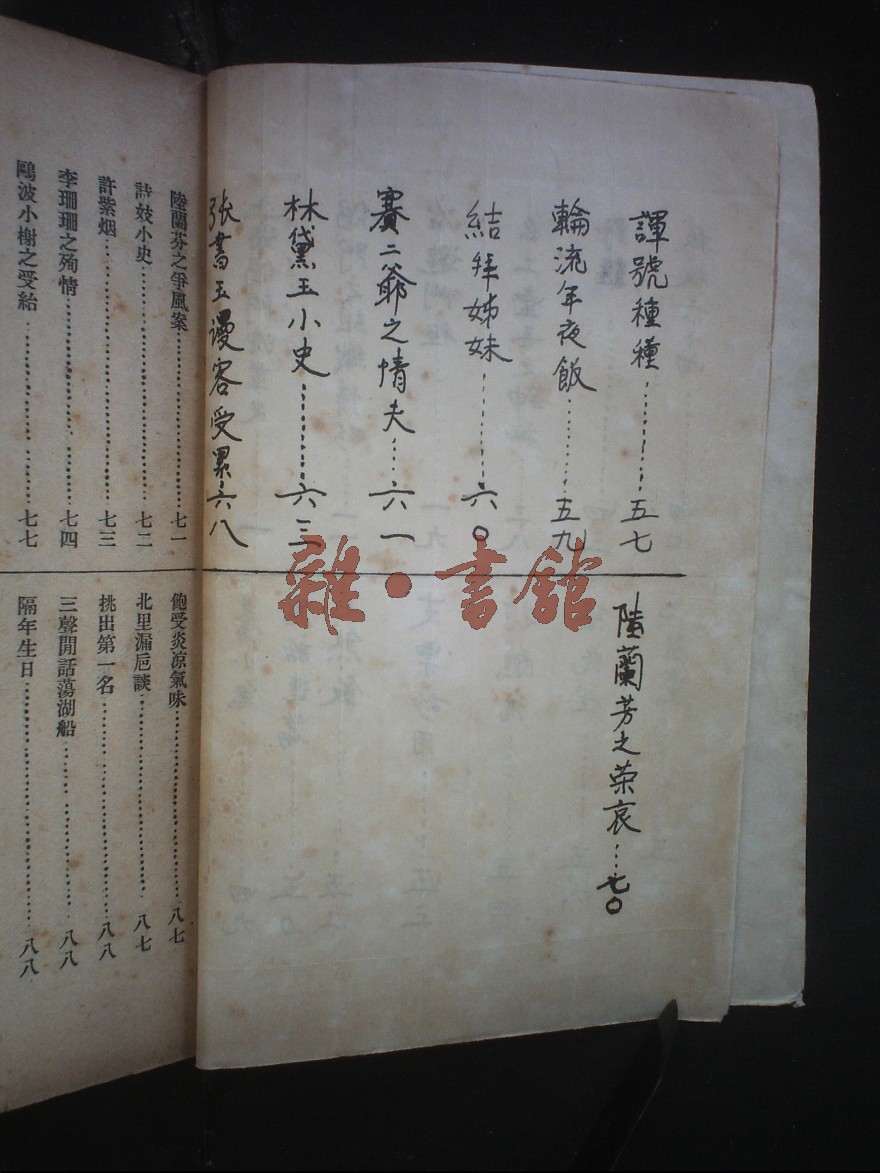 諢號種種………五七
輪流年夜飯………五九
結拜姊妹………六〇
賽二爺之情夫…六一
林黛玉小史………六三
張書玉謾客受累六八
陸蘭芳之荣哀…七〇
陸蘭芬之爭風案………七一
詩妓小史………七二
許紫烟………七三
李珊珊之殉情………七四
鷗波小榭之受給………七七
飽受炎涼氣味………八七
北里漏巵談………八七
挑出第一名………八八
三聲閒話蕩湖船………八八
隔年生日………八八
雜·書館